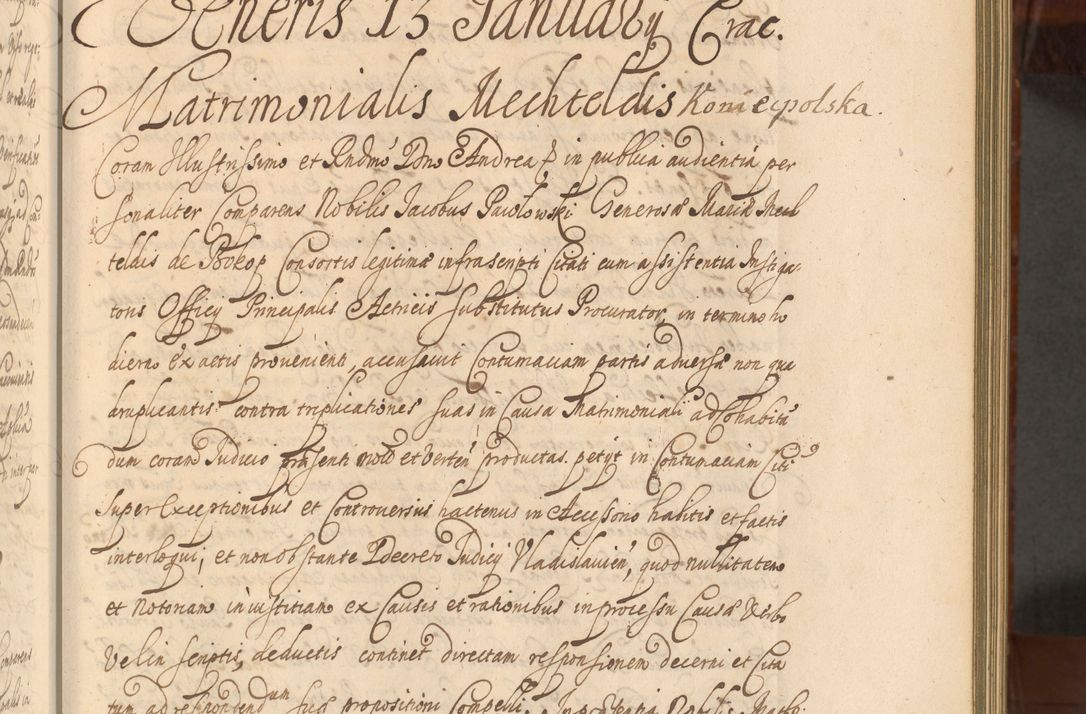 Veneris 13 Januarÿ Crac.
Matrimonialis Mechteldis Koniecpolska.
Coram Illustrissimo et Rndmo Dno Andrea in publica audientia per
sonaliter Comparens Nobilis Jacobus Pawłowski Generosæ Mariæ Mech
teldis de Prokop Consortis legitimæ infrascripti Citati cum assistentia Instiga-
toris Officÿ Principalis Actricis substitutus Procurator, in termino ho
dierno ex actis provenienti, accusavit Contumaciam partis adversæ non qua
druplicantis contra triplicationes suas in Causa Matrimoniali ad Cohabitā
dum coram Judicio præsenti mota et verten productas. petÿt in Contumaciam Citi
super Exceptionibus et Controversiis hactenus in Accessorio habitis et factis
interloqui; et non obstante Decreto Judicÿ Vladislavien, quod nullitatem
et notoriam iniustitiam ex Causis et rationibus in processu Causæ Verbo
vel in scriptis, deductis continet directam responsionem decerni et Cita
tum ad respondendum suæ propositioni Compelli. In præsentia Nobilis